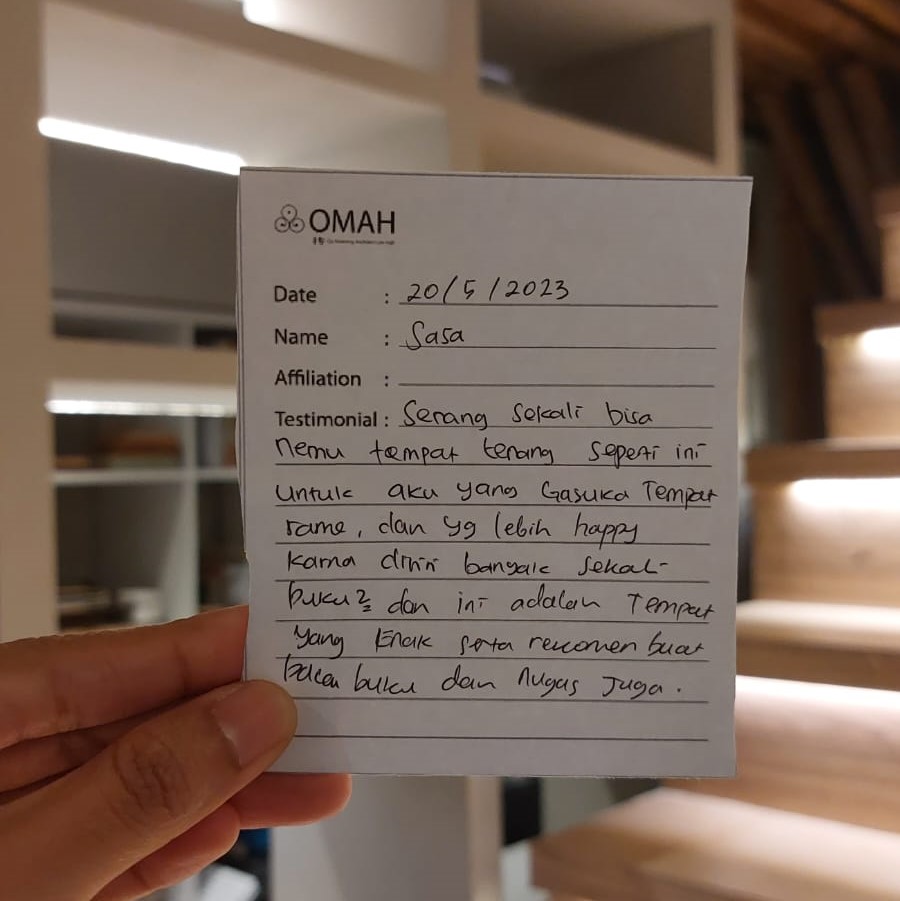 OMAH
Date : 20/5/2023
Name : Sasa
Affiliation :
Testimonial : Senang sekali bisa
nemu tempat tenang seperti ini
untuk aku yang Gasuka Tempat
rame, dan yg lebih happy
karna disini banyak sekali
buku2 dan ini adalah Tempat
yang Enak serta recomen buat
baca buku dan Nugas Juga.